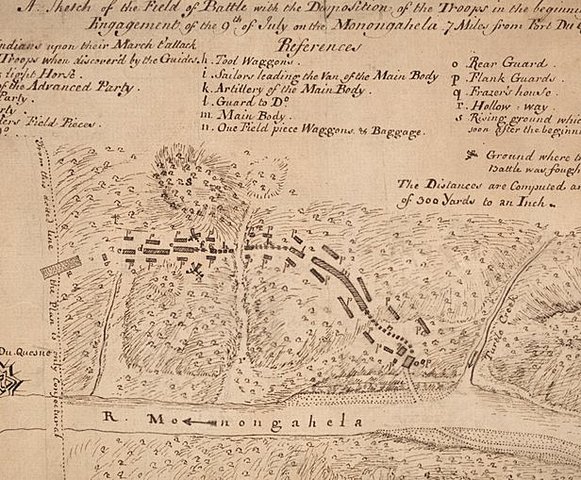 A Sketch of the Field of Battle with the Disposition of the Troops in the beginn
Engagement of the 9th of July on the Monongahela 7 Miles from Fort Du
References
Indians upon their March t'attack
Troops when discover'd by the Guides.
light Horse.
of the Advanced Party
Party.
Field Pieces.
h. Tool Waggons.
i. Sailors leading the Van of the Main Body
k. Artillery of the Main Body.
l. Guard to Do
m. Main Body.
n. One Field piece Waggons & Baggage.
o Rear Guard.
p. Flank Guards.
q. Frazer's house.
r. Hollow way.
s Rising ground whic
soon after the beginn
Ground where t
Battle was fough
The Distances are Computed a
of 300 Yards to an Inch.
From this mark line this Plan is only Conjectural
Du Quesne
Turtle Creek
R. Monongahela